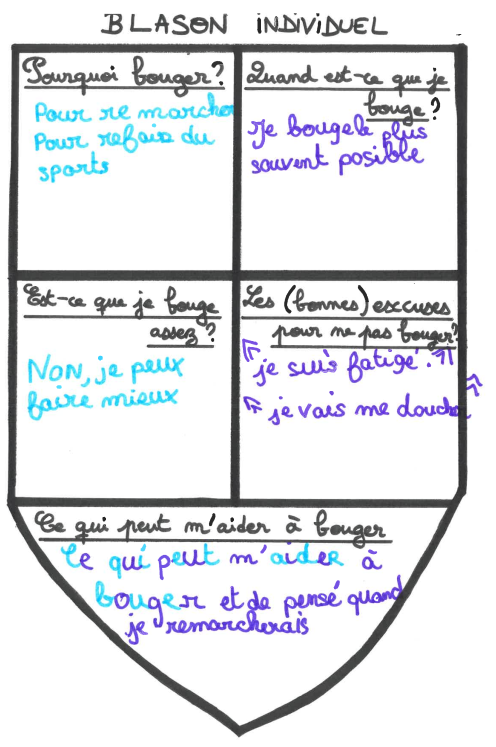 BLASON INDIVIDUEL
Pourquoi bouger?
Pour re marcher
Pour refair du
sports
Quand est-ce que je
bouge?
Je bouge le plus
souvent posible
Est-ce que je bouge
assez?
NON, je peux
faire mieux
Les (bonnes) excuses
pour ne pas bouger?
"je suis fatigé."
"je vais me doucher"
Ce qui peut m'aider à bouger
Ce qui peut m'aider à
bouger et de pensé quand
je remarcherais